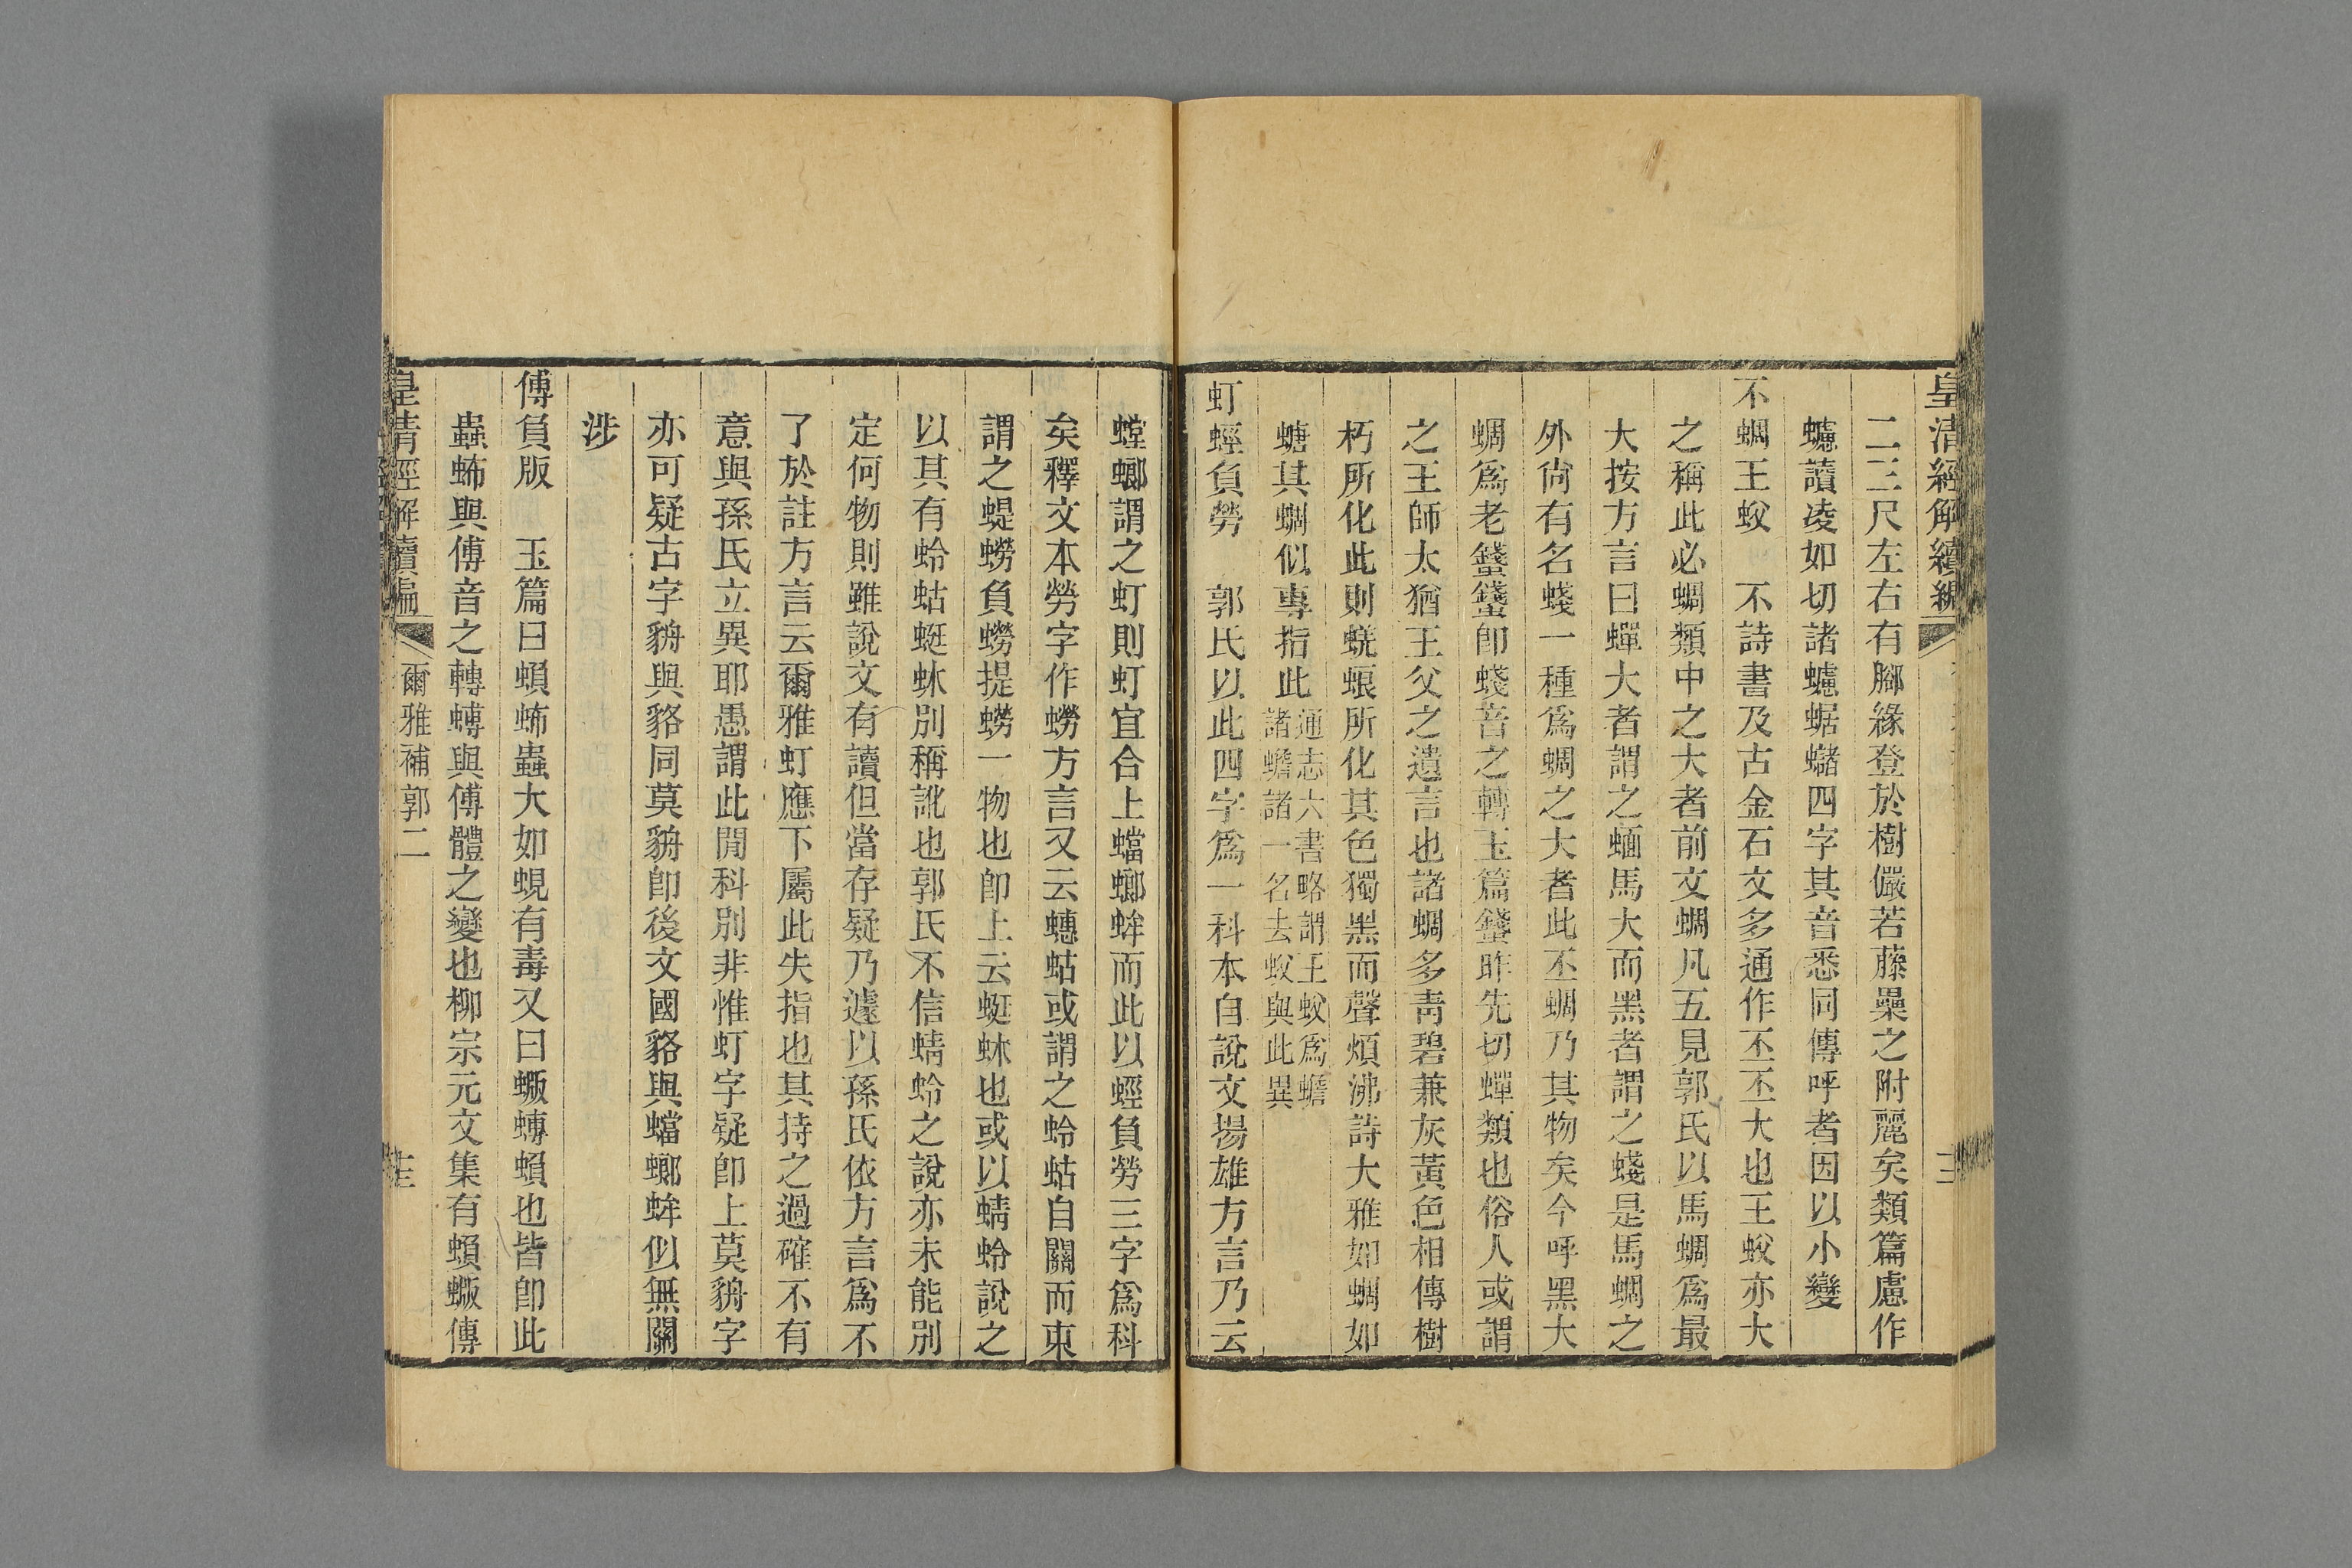 皇清經解續編
二三尺左右有腳緣登於樹儼若藤櫐之附麗矣類篇慮作
蠦讀凌如切諸蠦蜛蠩四字其音悉同傳呼者因以小變
不蜩王蚥　不詩書及古金石文多通作丕丕大也王蚥亦大
之稱此必蜩類中之大者前文蜩凡五見郭氏以馬蜩爲最
大按方言曰蟬大者謂之蝒馬大而黑者謂之蝬是馬蜩之
外尙有名蝬一種爲蜩之大者此丕蜩乃其物矣今呼黑大
蜩爲老螸螸卽蝬音之轉玉篇螸昨先切蟬類也俗人或謂
之王師太猶王父之遺言也諸蜩多靑碧兼灰黃色相傳樹
朽所化此則蜣蜋所化其色獨黑而聲煩沸詩大雅如蜩如
螗其蜩似專指此
通志六書略謂王蚥爲蟾
諸蟾諸一名去蚥與此異
虰蛵負勞　郭氏以此四字爲一科本自說文揚雄方言乃云
螳螂謂之虰則虰宜合上蟷螂蛑而此以蛵負勞三字爲科
矣釋文本勞字作蟧方言又云蟪蛄或謂之蛉蛄自關而東
謂之蝭蟧負蟧提蟧一物也卽上云蜓蚞也或以蜻蛉說之
以其有蛉蛄蜓蚞別稱訛也郭氏不信蜻蛉之說亦未能別
定何物則雖說文有讀但當存疑乃遽以孫氏依方言爲不
了於註方言云爾雅虰應下屬此失指也其持之過確不有
意與孫氏立異耶愚謂此閒科別非惟虰字疑卽上莫貈字
亦可疑古字貈與貉同莫貈卽後文國貉與蟷螂蛑似無關
涉
傅負版　玉篇曰蝜蚾蟲大如蜆有毒又曰蟨蟳蝜也皆卽此
蟲蚾與傅音之轉蟳與傅體之變也柳宗元文集有蝜蟨傳
皇清經解續編
爾雅補郭二